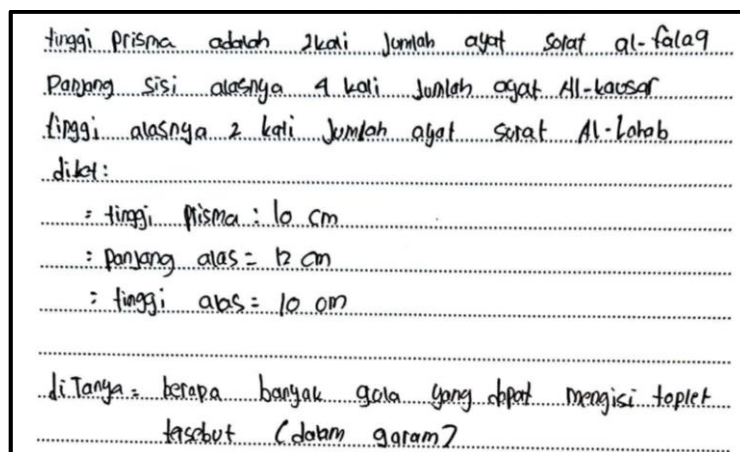 tinggi prisma adalah 2kali Jumlah ayat sorat al-falaq
Panjang sisi alasnya 4 kali Jumlah ayat Al-kausar
tinggi alasnya 2 kali Jumlah ayat surat Al-Lahab
diket:
= tinggi Prisma : 10 cm
: Panjang alas = 12 cm
= tinggi alas = 10 cm
diTanya = berapa banyak gula yang dapat mengisi toples
tersebut (dalam garam)